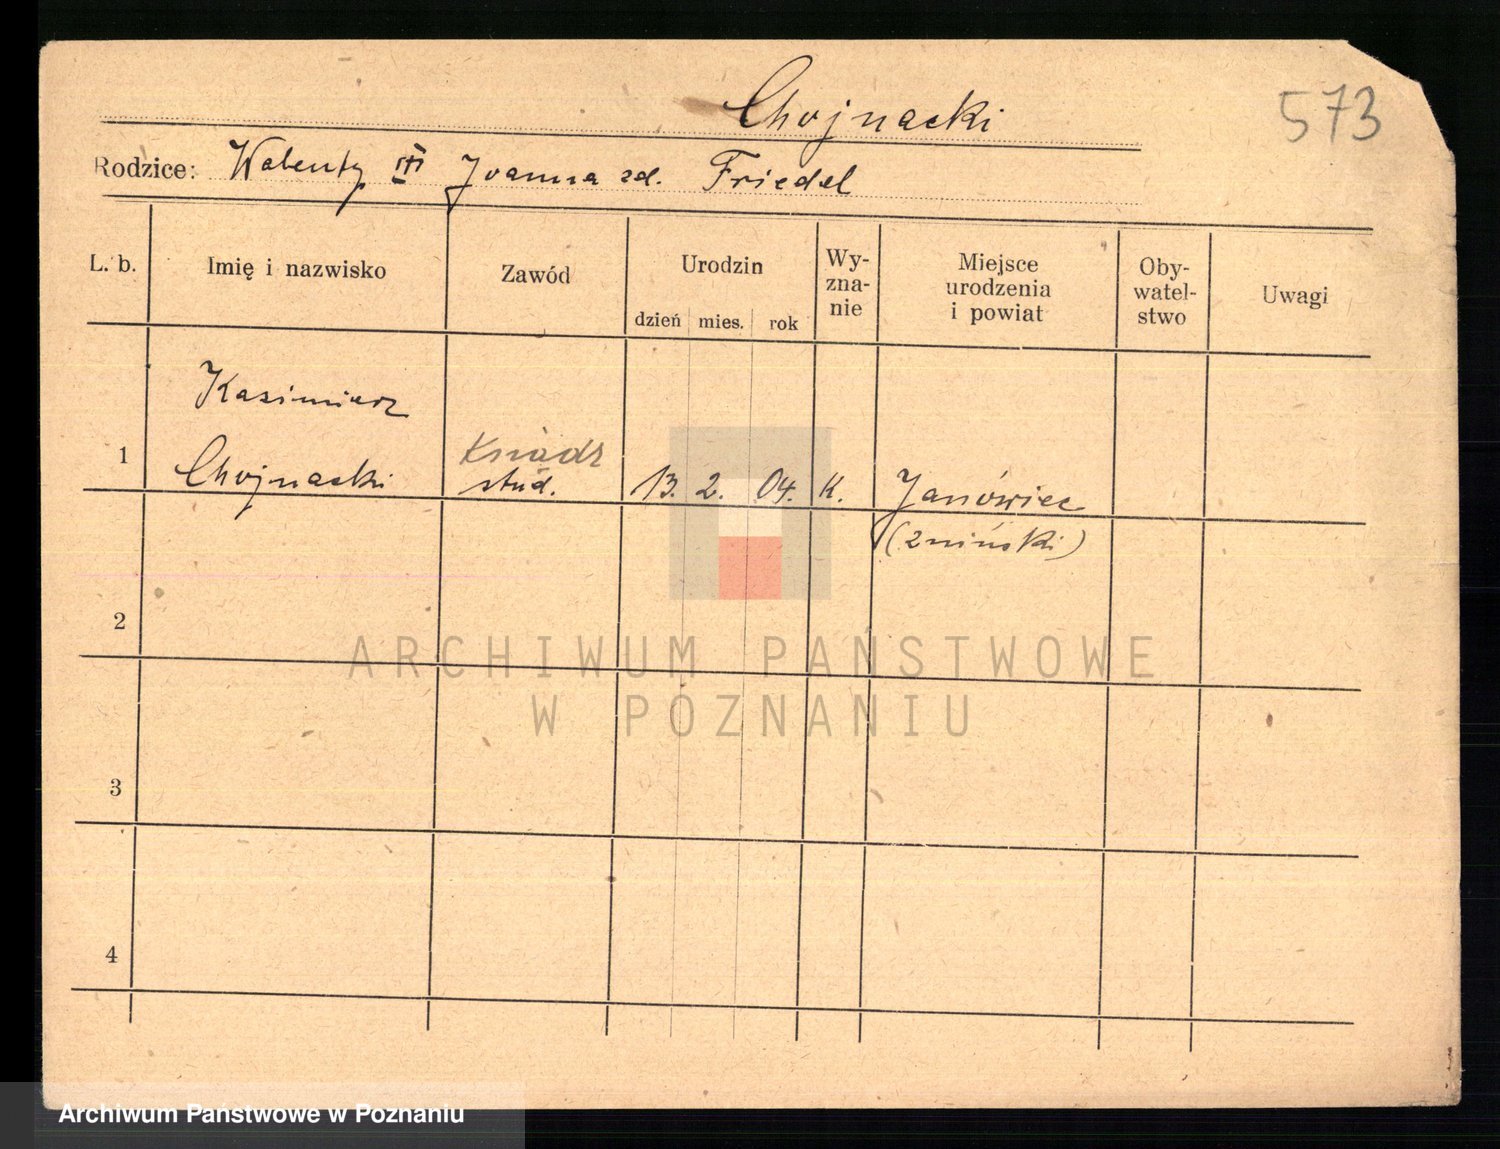 Chojnacki
573
Rodzice: Walenty Joanna zd. Friedel
L. b.
Imię i nazwisko
Zawód
Urodzin
dzień mies. rok
Wy-
zna-
nie
Miejsce
urodzenia
i powiat
Oby-
watel-
stwo
Uwagi
Kazimierz
1
Chojnacki
Ksiądz
stud.
13. 2. 04. K.
Janówiec
(żniński)
2
3
4
ARCHIWUM PAŃSTWOWE
W POZNANIU
Archiwum Państwowe w Poznaniu